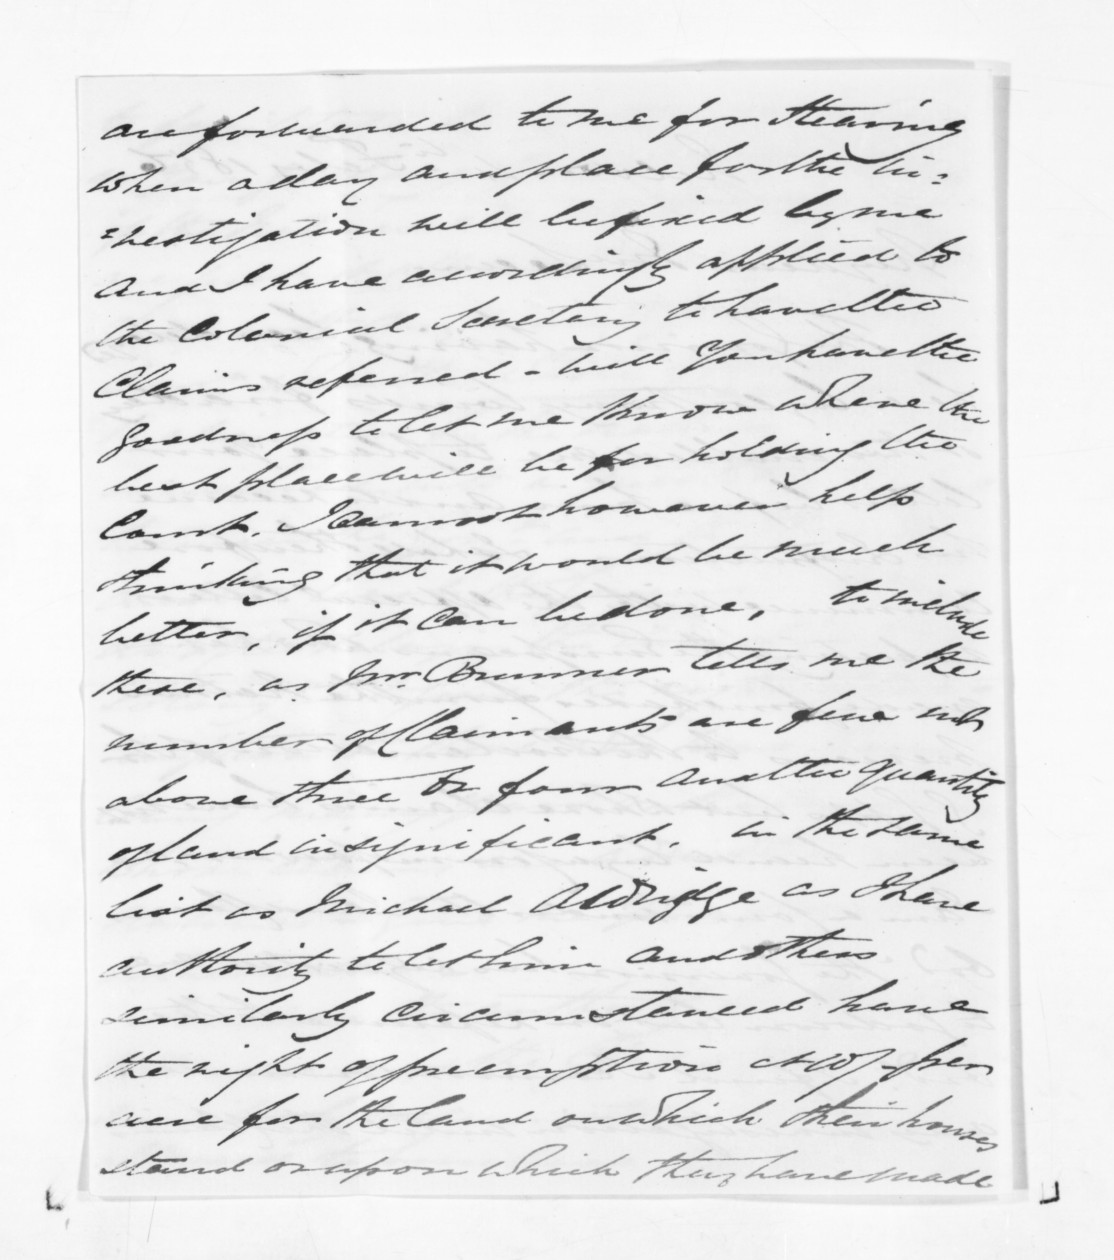 are forwarded to me for Hearing
when a day and place for the in=
=vestigation will be fixed by me
and I have accordingly applied to
the Colonial Secretary to have the
Claims referred - will You have the
goodness to let me Know where the
best place will be for holding the
Court. I cannot however help
thinking that it would be much
better, if it can be done, to include
these, as Mr. Brunner tells me the
number of Claimants are few not
above three or four and the quantity
of land insignificant. in the same
list as Michael Aldridge as I have
authority to let him and others
similarly circumstanced have
the right of preemption at 10/- per
acre for the land on which their houses
stand or upon which they have made